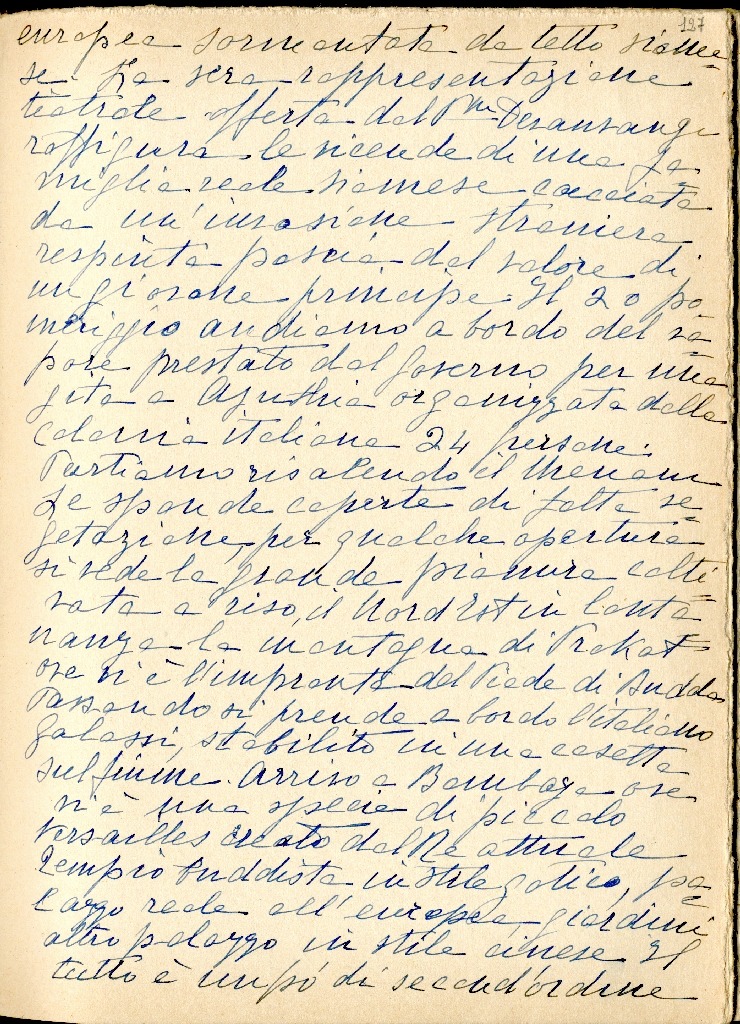 197
europea sormontata da tetto siame=
se. La sera rappresentazione
teatrale offerta dal Pm
raffigura le vicende di una fa=
miglia reale siamese cacciata
da un'invasione straniera
respinta poscia dal valore di
un giovane principe. Il 20 po=
meriggio andiamo a bordo del va=
pore prestato dal governo per una
gita a Ayuthia organizzata dalla
colonia italiana 24 persone.
Partiamo risalendo il Menam
Le sponde coperte di folta ve=
getazione, per qualche apertura
si vede la grande pianura colti=
vata a riso, il Nord Est in lonta=
nanza la montagna di Prabat
ove vi è l'impronta del Piede di Budda
Passando si prende a bordo l'italiano
Galassi, stabilito in una casetta
sul fiume. Arrivo a ove
vi è una specie di piccolo
Versailles creato dal Re attuale
Tempio buddista in stile gotico, pa=
lazzo reale all'europea giardini
altro palazzo in stile cinese Il
tutto è un pó di second'ordine